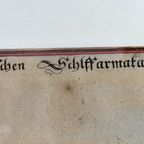 schen Schlffarmaka